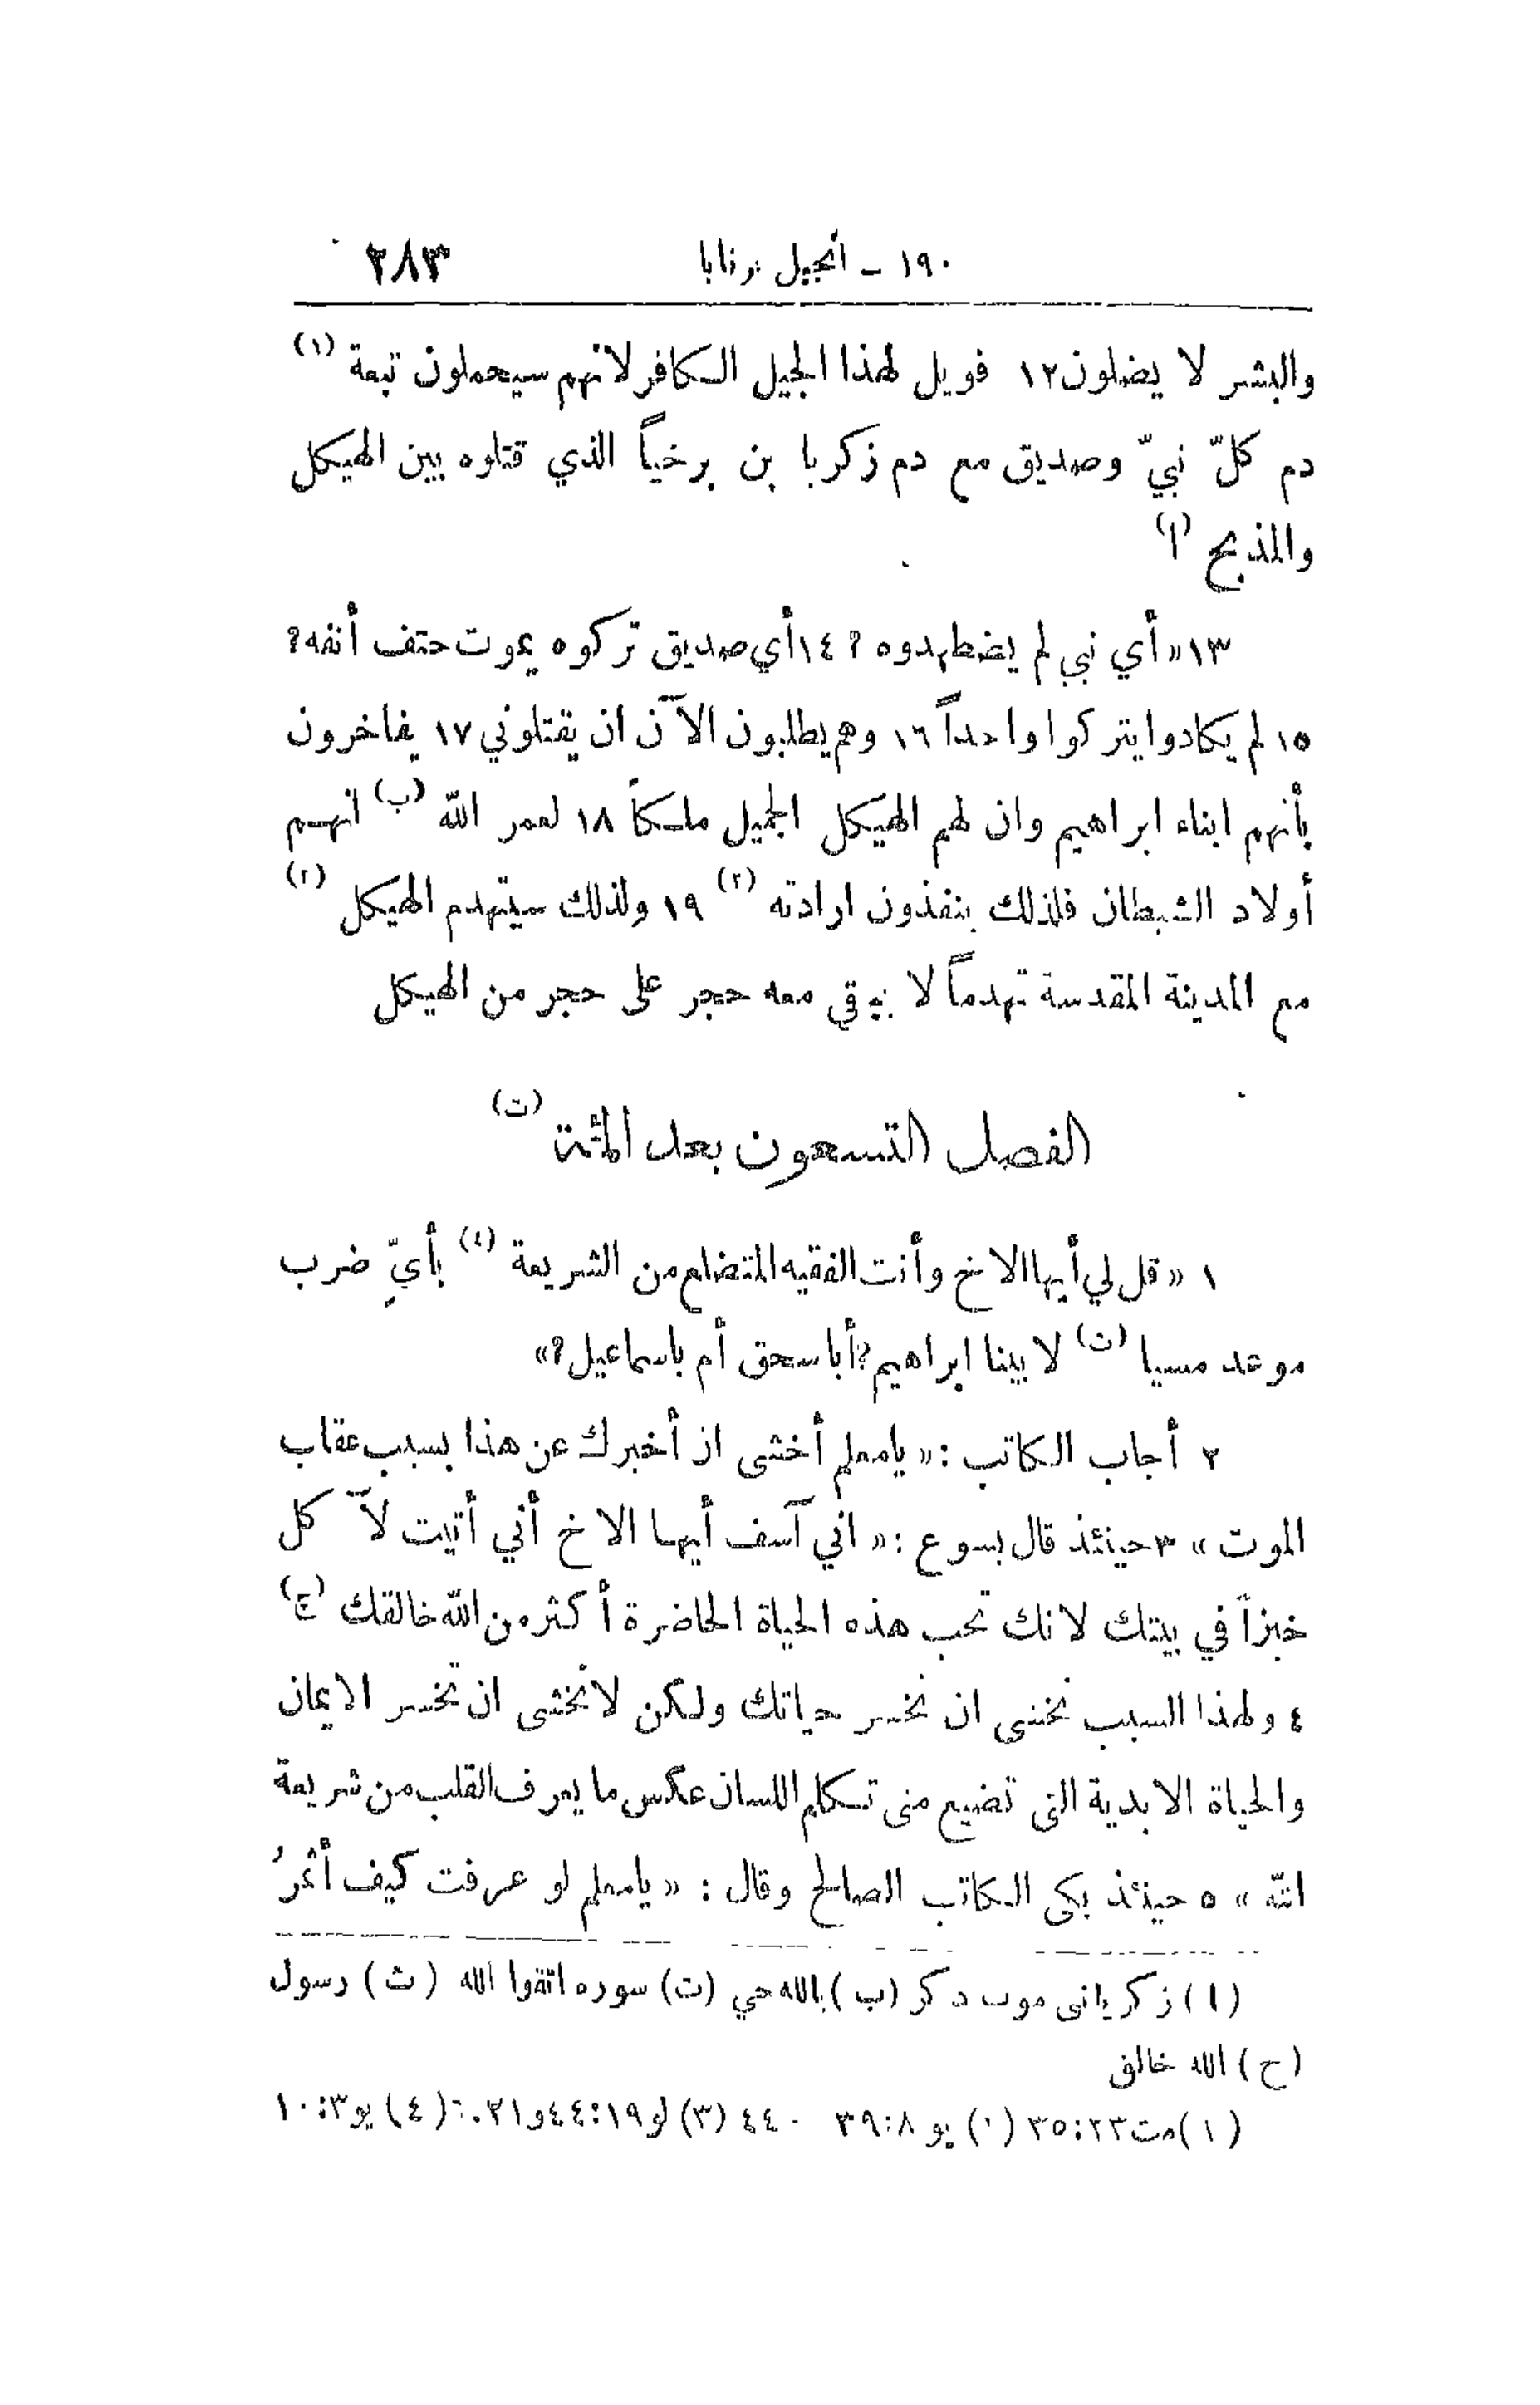 ١٩٠ – أنجيل برنابا ٢٨٣
والبشر لا يضلون ١٢ فويل لهذا الجيل الكافر لانهم سيحملون تبعة (١)
دم كلّ نبيّ وصديق مع دم زكريا بن برخياً الذي قتلوه بين الهيكل
والمذبح (أ)
١٣ «أي نبي لم يضطهدوه ؟ ١٤ أي صديق تركوه يموت حتف أنفه ؟
١٥ لم يكادوا يتركوا واحداً ١٦ وهم يطلبون الآن ان يقتلوني ١٧ يفاخرون
بأنهم ابناء ابراهيم وان لهم الهيكل الجميل ملكاً ١٨ لعمر الله (ب) انهم
أولاد الشيطان فلذلك ينفذون ارادته (٢) ١٩ ولذلك سيتهدم الهيكل (٣)
مع المدينة المقدسة تهدماً لا يبقي معه حجر على حجر من الهيكل
الفصل التسعون بعد المئة (ت)
١ «قل لي أيها الاخ وأنت الفقيه المتضلع من الشريعة (٤) بأيّ ضرب
موعد مسيا (ث) لا بينا ابراهيم ؟ أباسحق أم باسماعيل ؟»
٢ أجاب الكاتب : «يامعلم أخشى ان أخبرك عن هذا بسبب عقاب
الموت» ٣ حينئذ قال يسوع : «اني آسف أيها الاخ أني أتيت لآ كل
خبزاً في بيتك لانك تحب هذه الحياة الحاضرة أكثر من الله خالقك (ج)
٤ ولهذا السبب تخشى ان تخسر حياتك ولكن لا تخشى ان تخسر الايمان
والحياة الابدية التى تضيع متى تكلم اللسان عكس ما يعرف القلب من شريعة
الله» ٥ حينئذ بكى الكاتب الصالح وقال : «يامعلم لو عرفت كيف أثمرُ
(ا) زكريا نى موت دكر (ب) بالله حي (ت) سوره اتقوا الله (ث) رسول
(ج) الله خالق
(١) مت ٢٣:٣٥ (٢) يو ٨:٣٩ - ٤٤ (٣) لو ١٩:٤٤ و٢١:٦ (٤) يو ٣:١٠